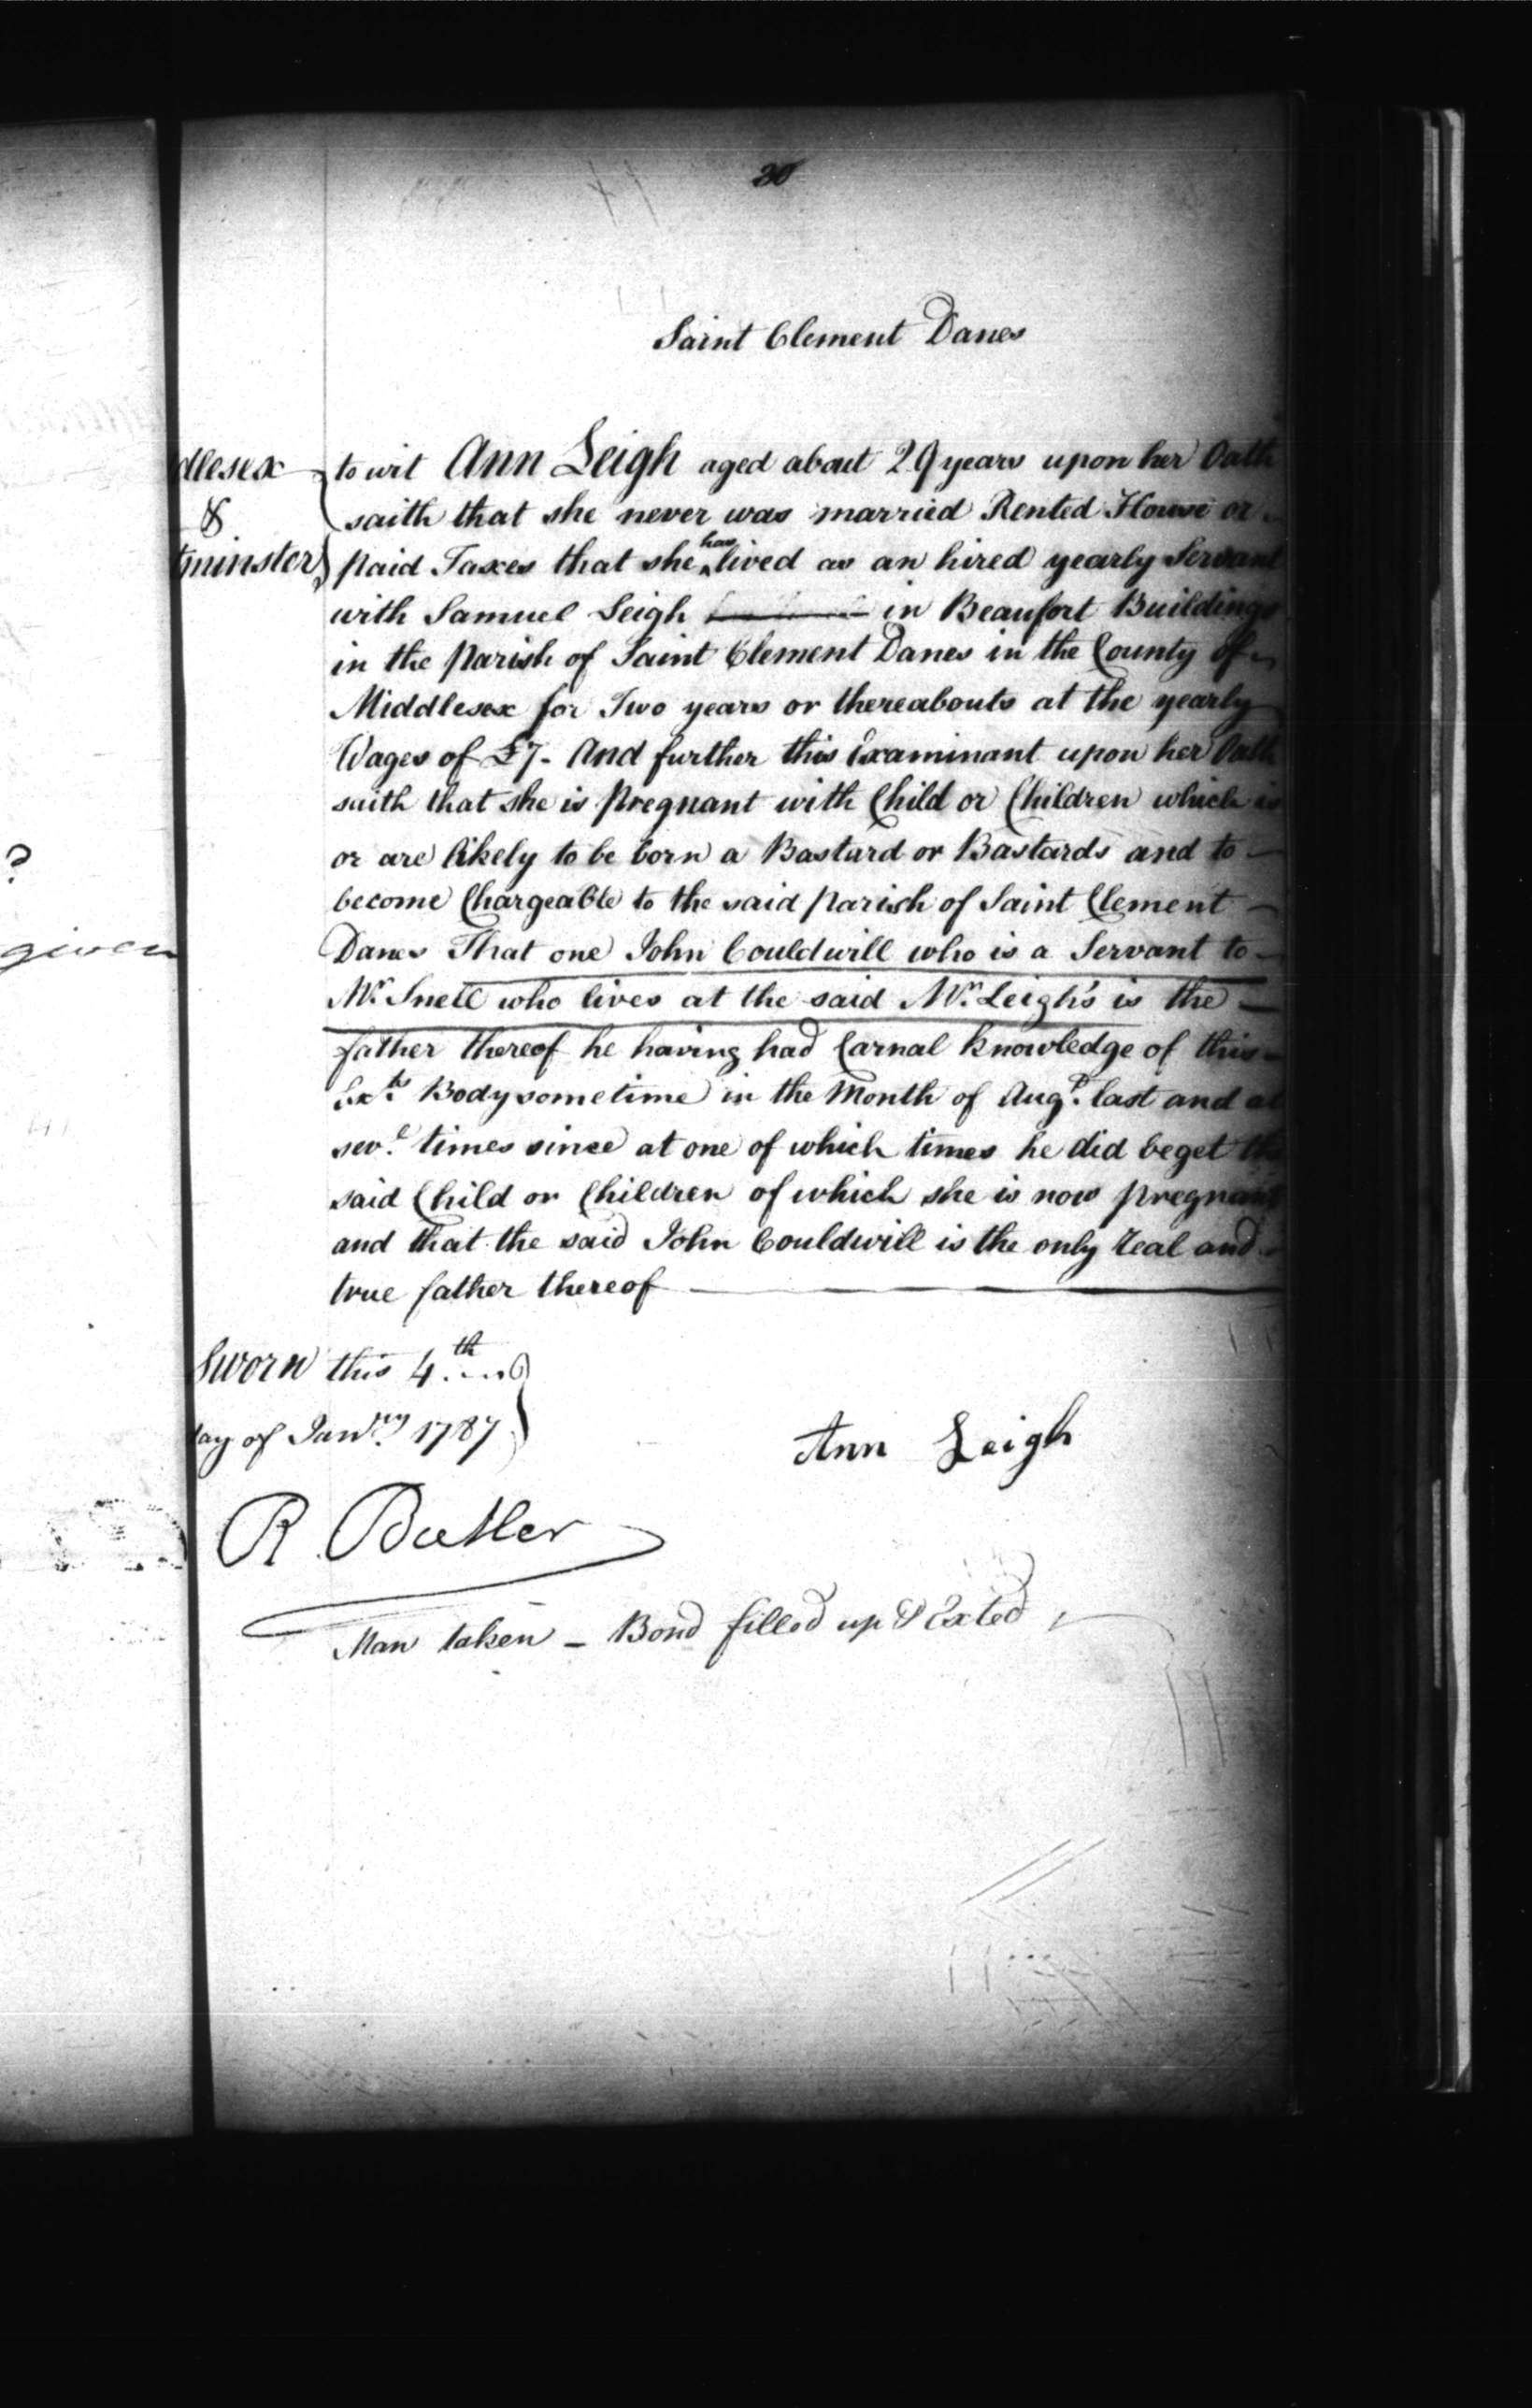 20
Saint Clement Danes
dlesex to wit Ann Leigh aged about 29 years upon her Oath
& saith that she never was married Rented House or
tminster paid Taxes that she has lived as an hired yearly Servant
with Samuel Leigh in Beaufort Buildings
in the parish of Saint Clement Danes in the County of
Middlesex for Two years or thereabouts at the yearly
Wages of £7- And further this Examinant upon her Oath
saith that she is pregnant with Child or Children which is
or are likely to be born a Bastard or Bastards and to
become Chargeable to the said parish of Saint Clement
Danes That one John Couldwill who is a Servant to
Mr. Snell who lives at the said Mr. Leigh's is the
father thereof he having had Carnal knowledge of this
Exts. Body sometime in the Month of Augt. last and at
sevl. times since at one of which times he did beget the
said Child or Children of which she is now pregnant
and that the said John Couldwill is the only real and
true father thereof
Sworn this 4th
day of Janry. 1787
Ann Leigh
R. Butler
Man taken - Bond filled up & Exted
?
given